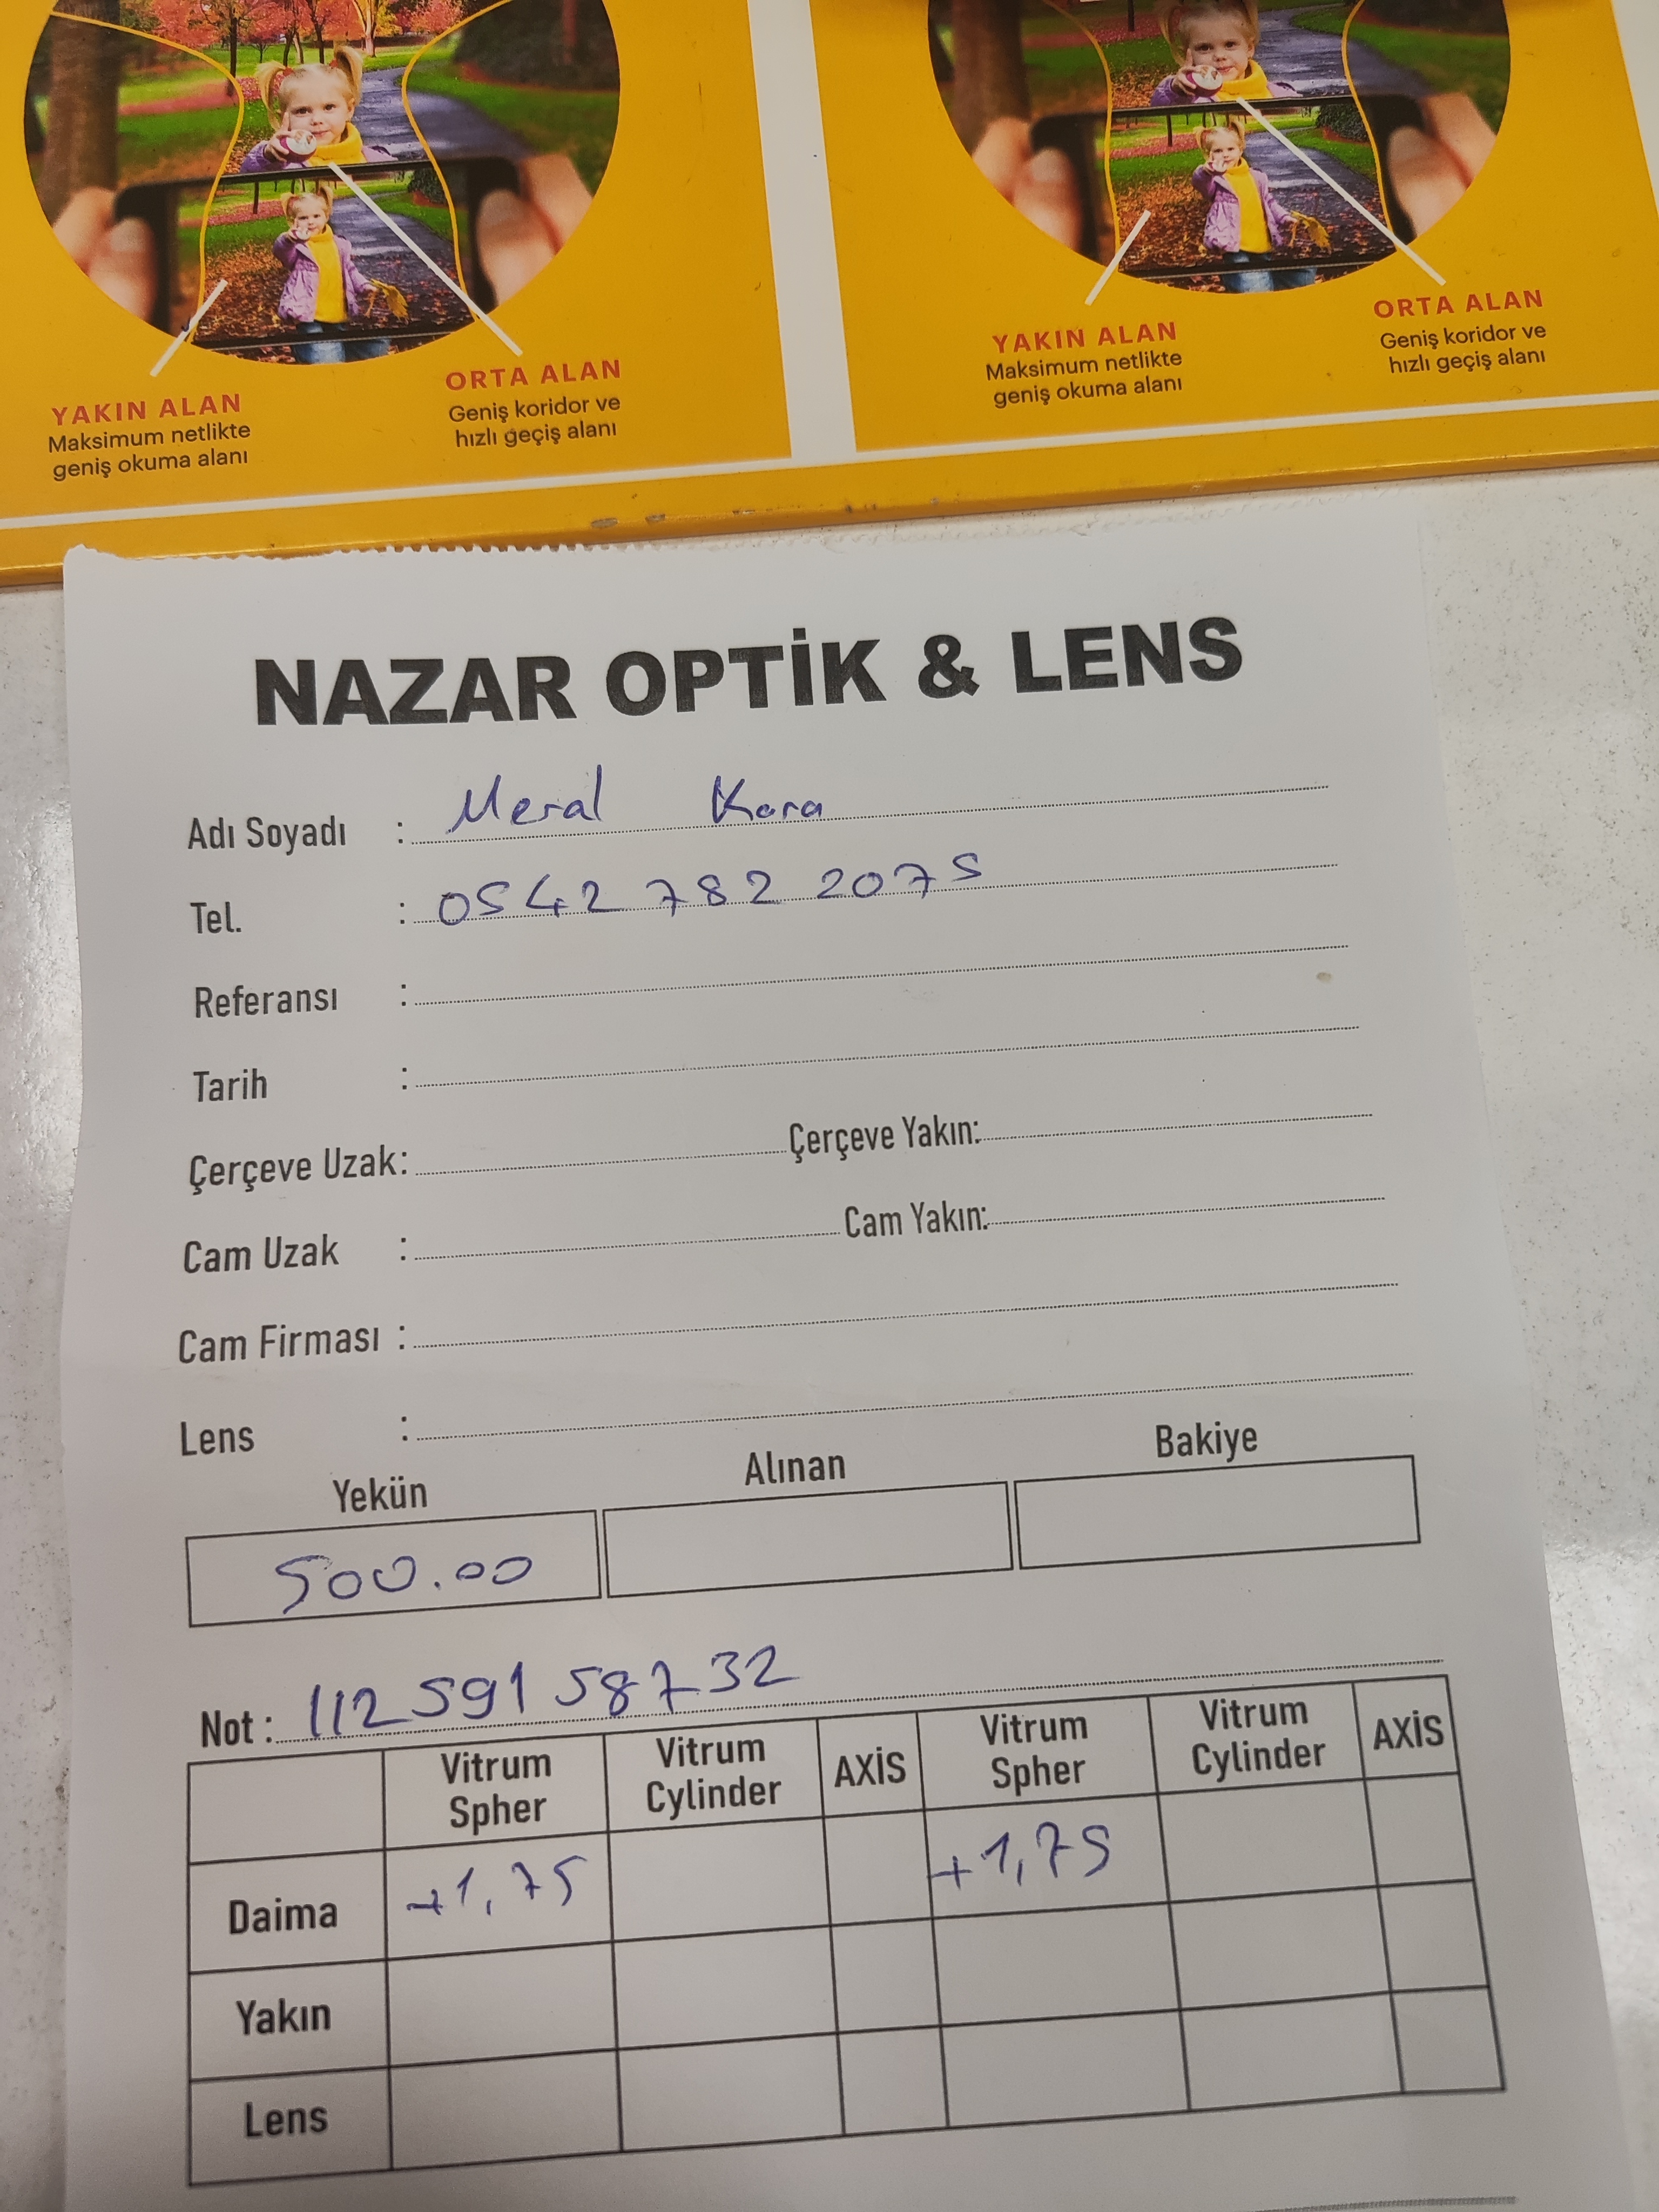 YAKIN ALAN
Maksimum netlikte
geniş okuma alanı
ORTA ALAN
Geniş koridor ve
hızlı geçiş alanı
YAKIN ALAN
Maksimum netlikte
geniş okuma alanı
ORTA ALAN
Geniş koridor ve
hızlı geçiş alanı
NAZAR OPTİK & LENS
Adı Soyadı : Meral Kara
Tel. : 0542 782 2075
Referansı :
Tarih :
Çerçeve Uzak: Çerçeve Yakın:
Cam Uzak : Cam Yakın:
Cam Firması :
Lens :
Yekün Alınan Bakiye
500.00
Not : 112 591 58732
Vitrum Spher Vitrum Cylinder AXİS Vitrum Spher Vitrum Cylinder AXİS
Daima +1,75 +1,75
Yakın
Lens